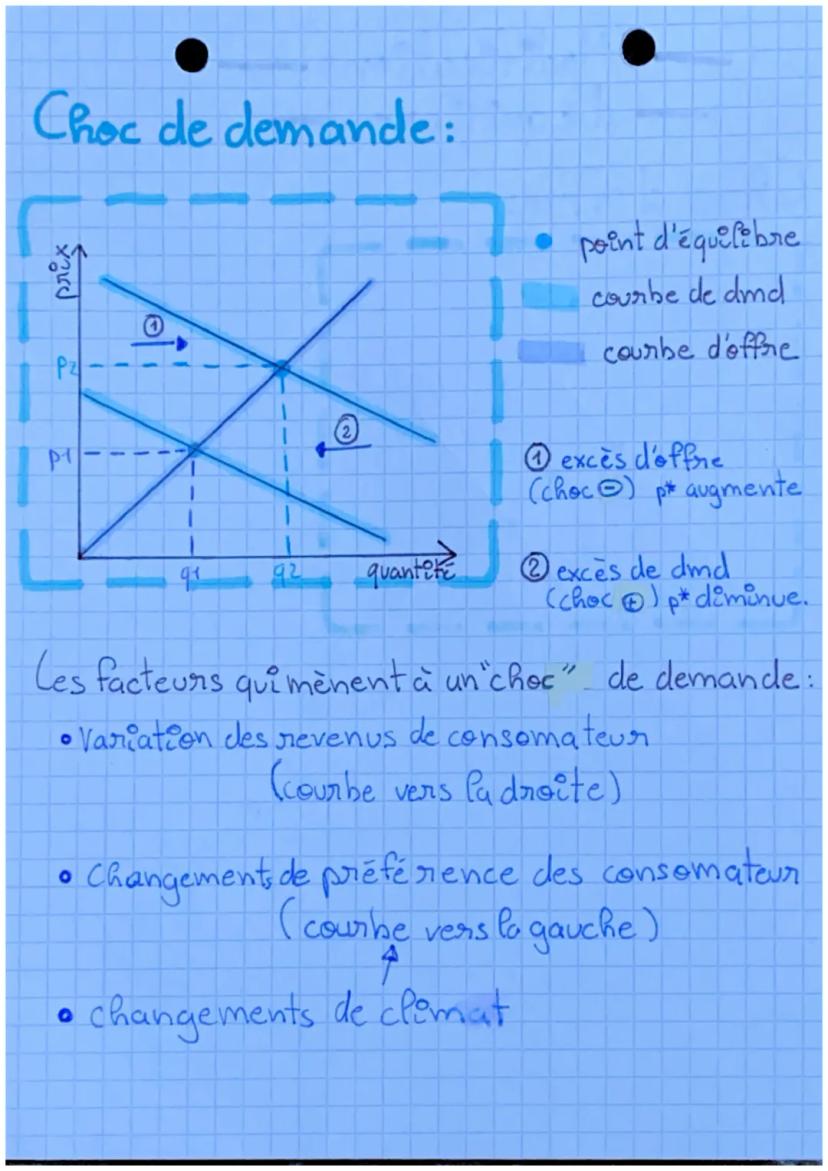 Choc de demande :
prix
①
P2
②
P1
q1 q2 quantité
point d'équilibre
courbe de dmd
courbe d'offre
① excès d'offre
(choc ⊖) p* augmente
② excès de dmd
(choc ⊕) p* diminue.
Les facteurs qui mènent à un "choc" de demande :
• Variation des revenus de consomateur
(courbe vers la droite)
• Changements de préférence des consomateur
(courbe vers la gauche)
• changements de climat